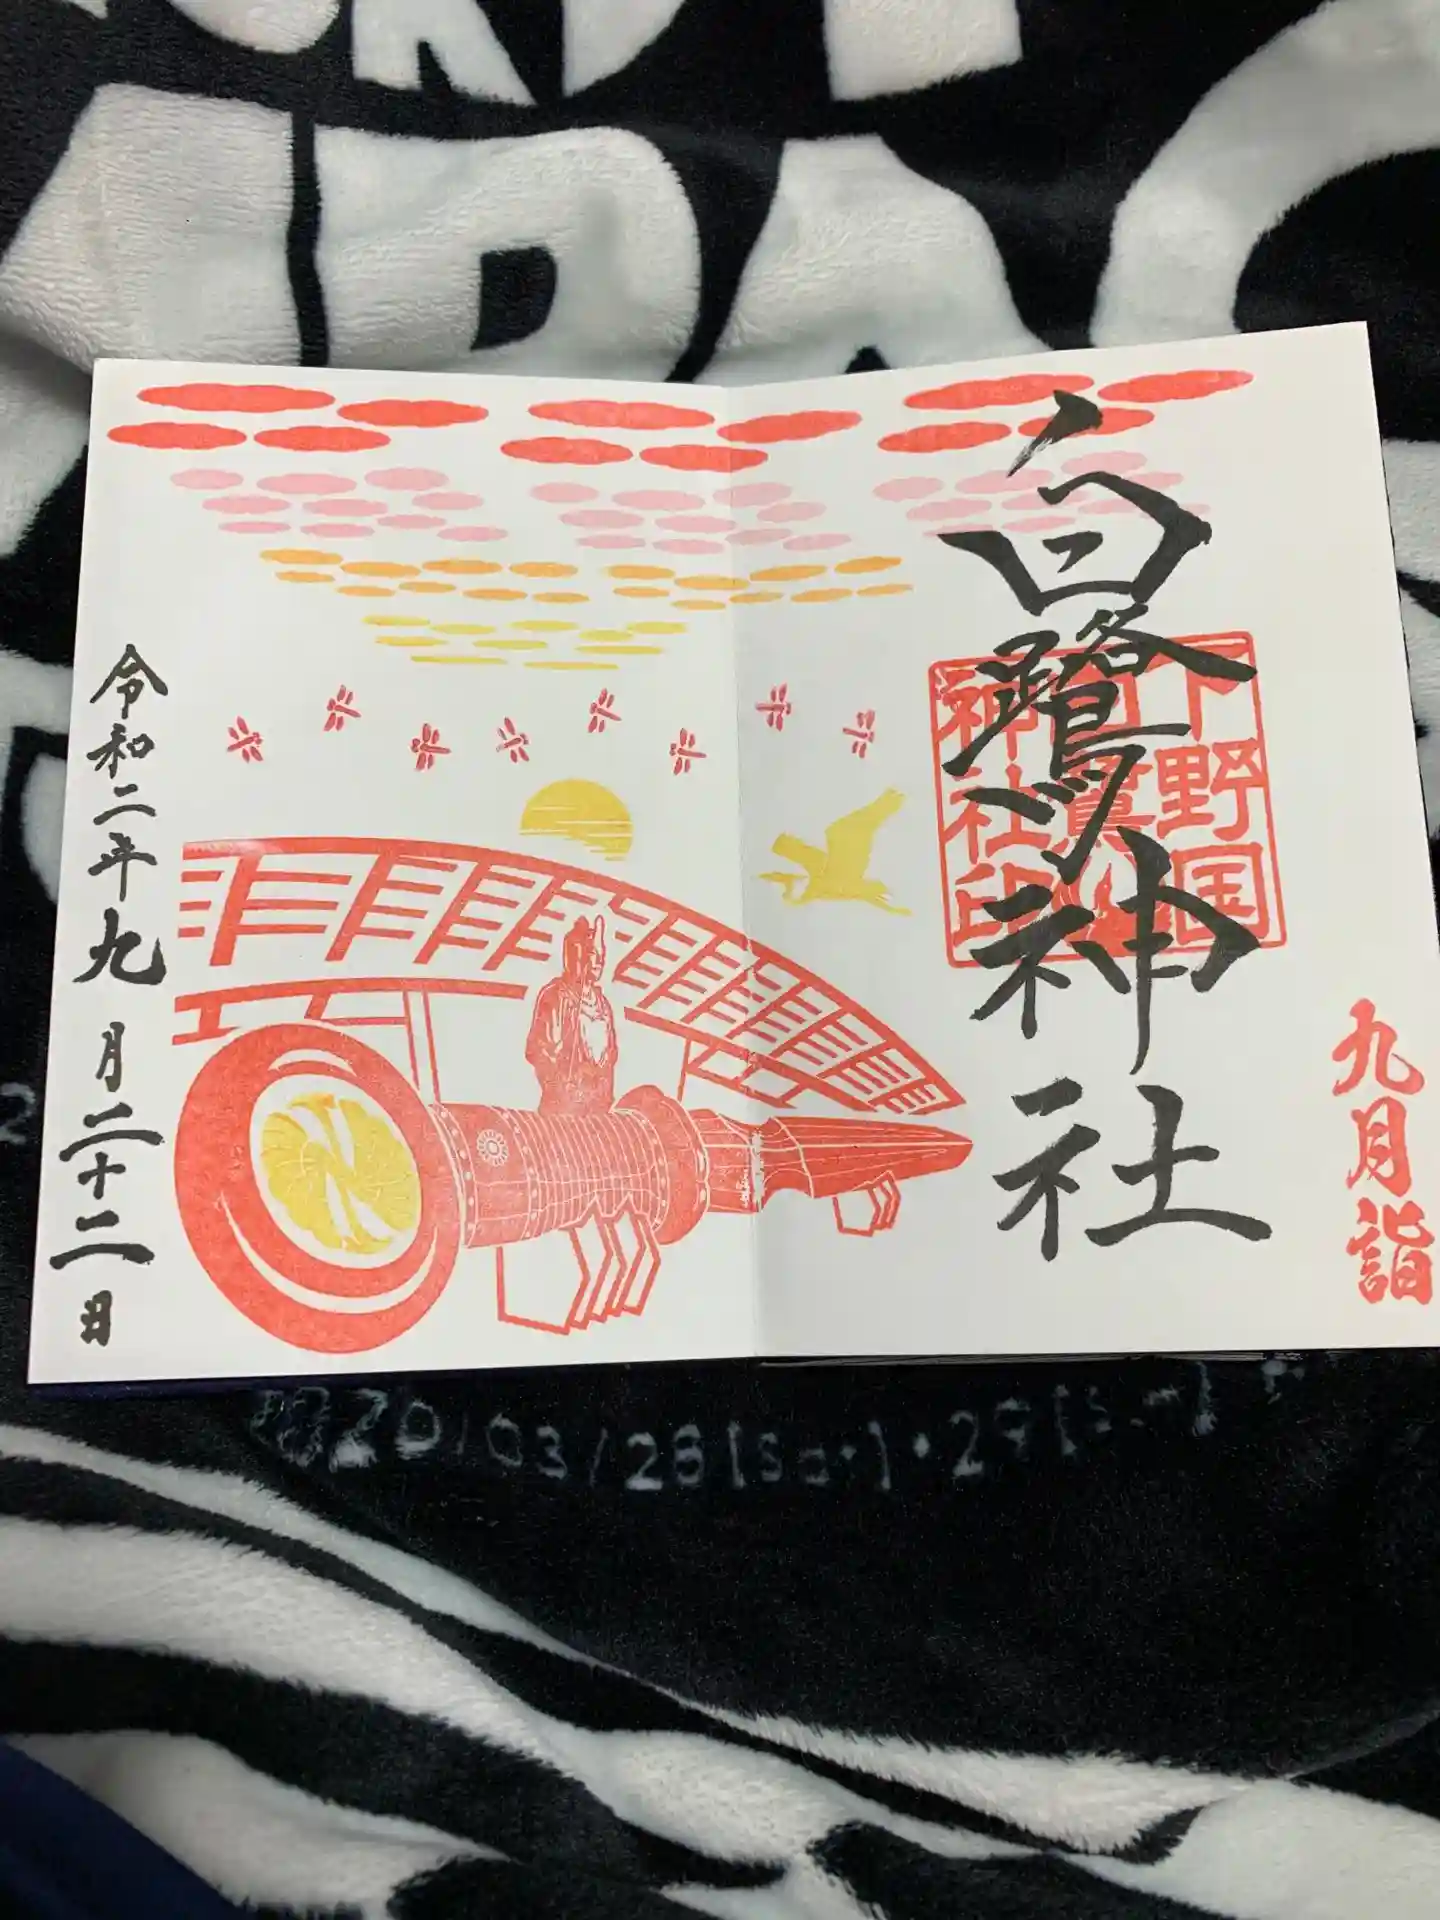 九月詣
白鷺神社
下野国
白鷺
神社印
令和二年九月二十二日
2020/03/28[Sat]・29[Sun]